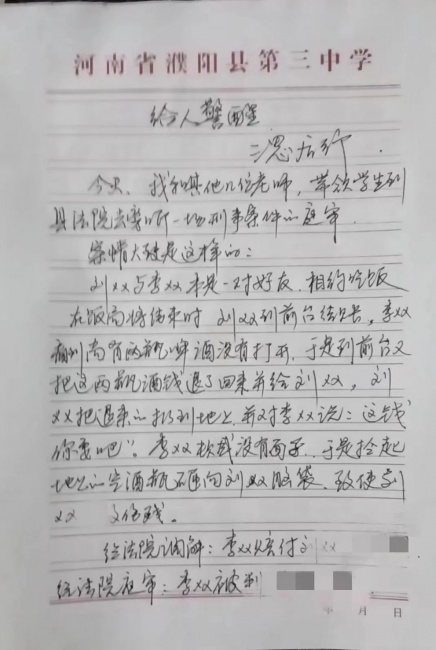 河南省濮阳县第三中学
给人警醒
今天，我和其他几位老师，带领学生到
县法院去旁听一场刑事案件的庭审。
案情大致是这样的：
刘xx与李xx本是一对好友，相约吃饭
在饭局将结束时 刘xx到前台结账，李xx
尚有两瓶啤酒没有打开，于是到前台又
把这两瓶酒钱退了回来并给刘xx，刘
xx把退来的扔到地上，并对李xx说："这钱
你要吧"。李xx没有面子，于是捡起
地上的空酒瓶砸向刘xx脑袋，致使刘
xx 伤残。
经法院调解：李xx赔付刘xx
经法院庭审：李xx被判
年 月 日